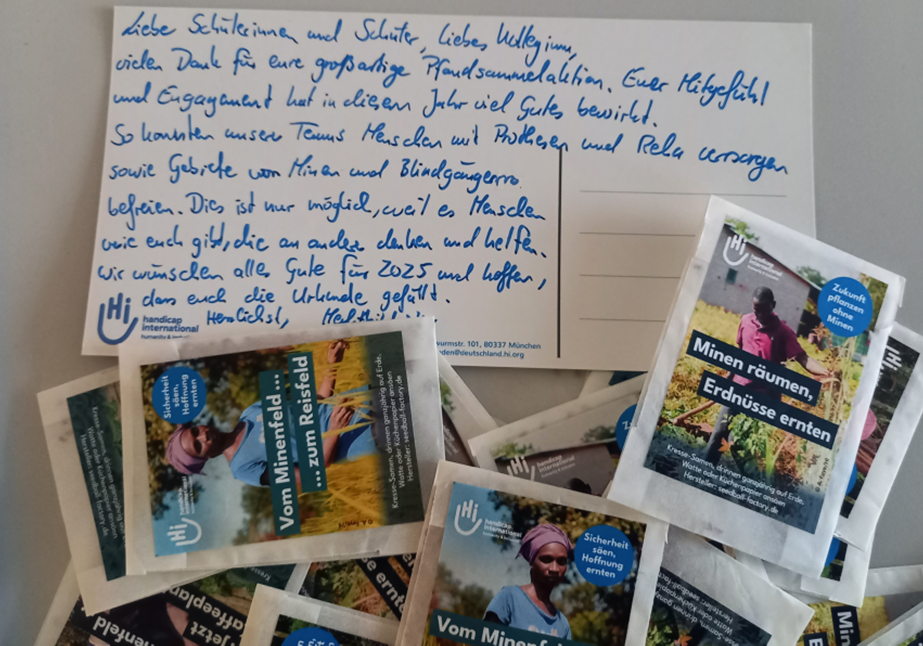 Liebe Schülerinnen und Schüler, liebes Kollegium,
vielen Dank für eure großartige Pfandsammelaktion. Euer Mitgefühl
und Engagement hat in diesem Jahr viel Gutes bewirkt.
So konnten unsere Teams Menschen mit Prothesen und Reha versorgen
sowie Gebiete von Minen und Blindgängern
befreien. Dies ist nur möglich, weil es Menschen
wie euch gibt, die an andere denken und helfen.
Wir wünschen alles Gute für 2025 und hoffen,
dass euch die Urkunde gefällt.
Herzlichst,
Hi
handicap
international
humanity &
str. 101, 80337 München
@deutschland.hi.org
Hi
handicap
international
Zukunft
pflanzen
ohne
Minen
Minen räumen,
Erdnüsse ernten
Kresse-Samen, drinnen ganzjährig auf Erde,
Watte oder Küchenpapier ansäen
Hersteller: seedball-factory.de
Sicherheit
säen,
Hoffnung
ernten
Vom Minenfeld ...
... zum Reisfeld
Kresse-Samen, drinnen ganzjährig auf Erde,
Watte oder Küchenpapier ansäen
Hersteller: seedball-factory.de
Hi
handicap
international
Hi
handicap
international
Sicherheit
säen,
Hoffnung
ernten
Vom Minenfeld
jetzt
Minen